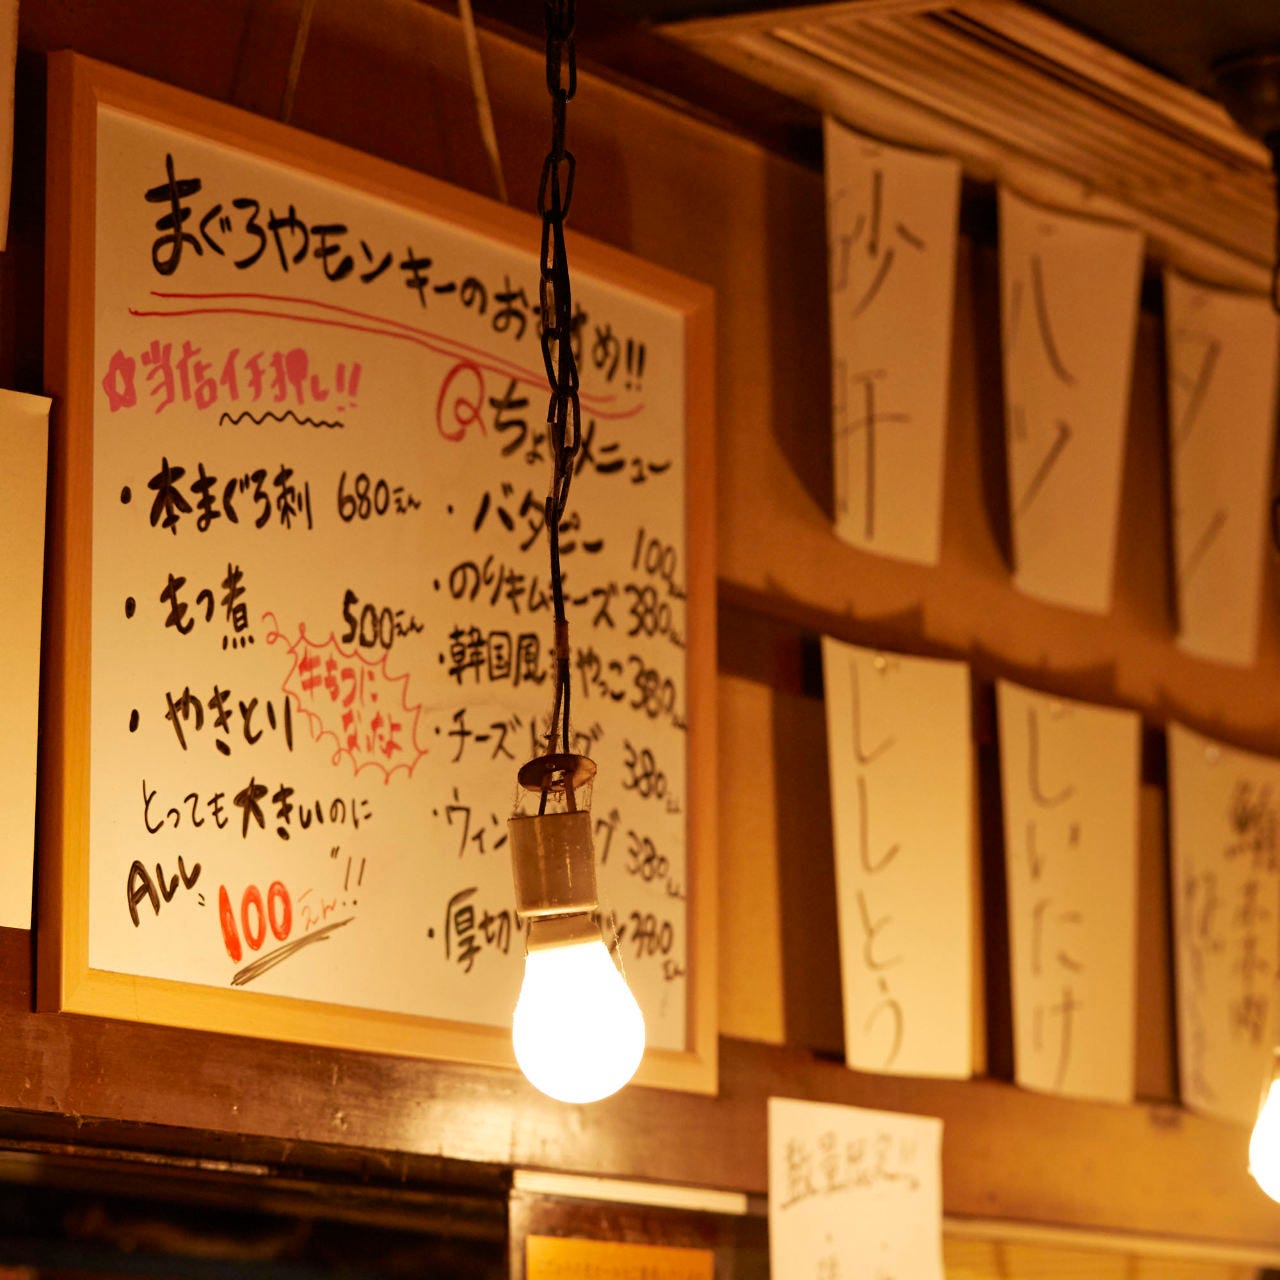 まぐろやモンキーのおすすめ!!
✩当店イチ押し!!
・本まぐろ刺 680えん
・もつ煮 500えん
牛もつに
なったよ
・やきとり
とっても大きいのに
ALL
100えん!!
ちょいメニュー
・バタピー 100えん
・のりキムチーズ 380えん
・韓国風 やっこ 380えん
・チーズドッグ 380えん
・ウィン グ 380えん
・厚切り 380えん
砂肝
ハツ
タン
ししとう
しいたけ
数量限定!!